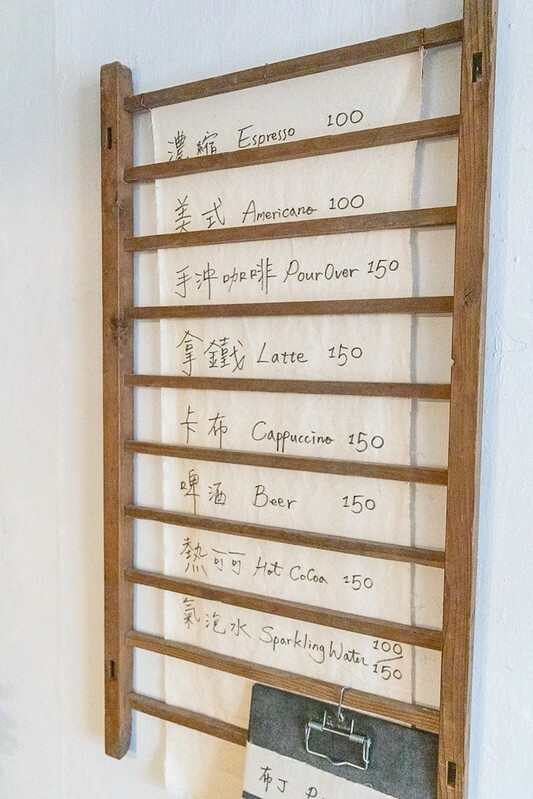 濃縮 Espresso 100
美式 Americano 100
手沖咖啡 PourOver 150
拿鐵 Latte 150
卡布 Cappuccino 150
啤酒 Beer 150
熱可可 Hot CoCoa 150
氣泡水 Sparkling Water 100/150
布丁